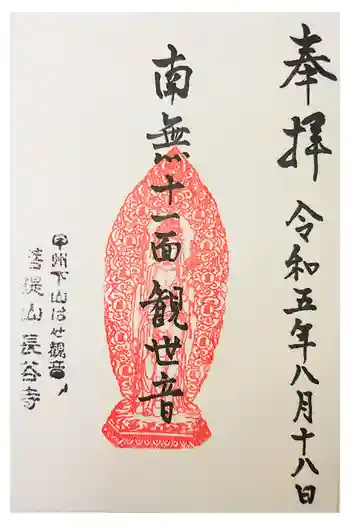 奉拝
令和五年八月十八日
南無十一面観世音
甲州下山はせ観音
菩提山長谷寺